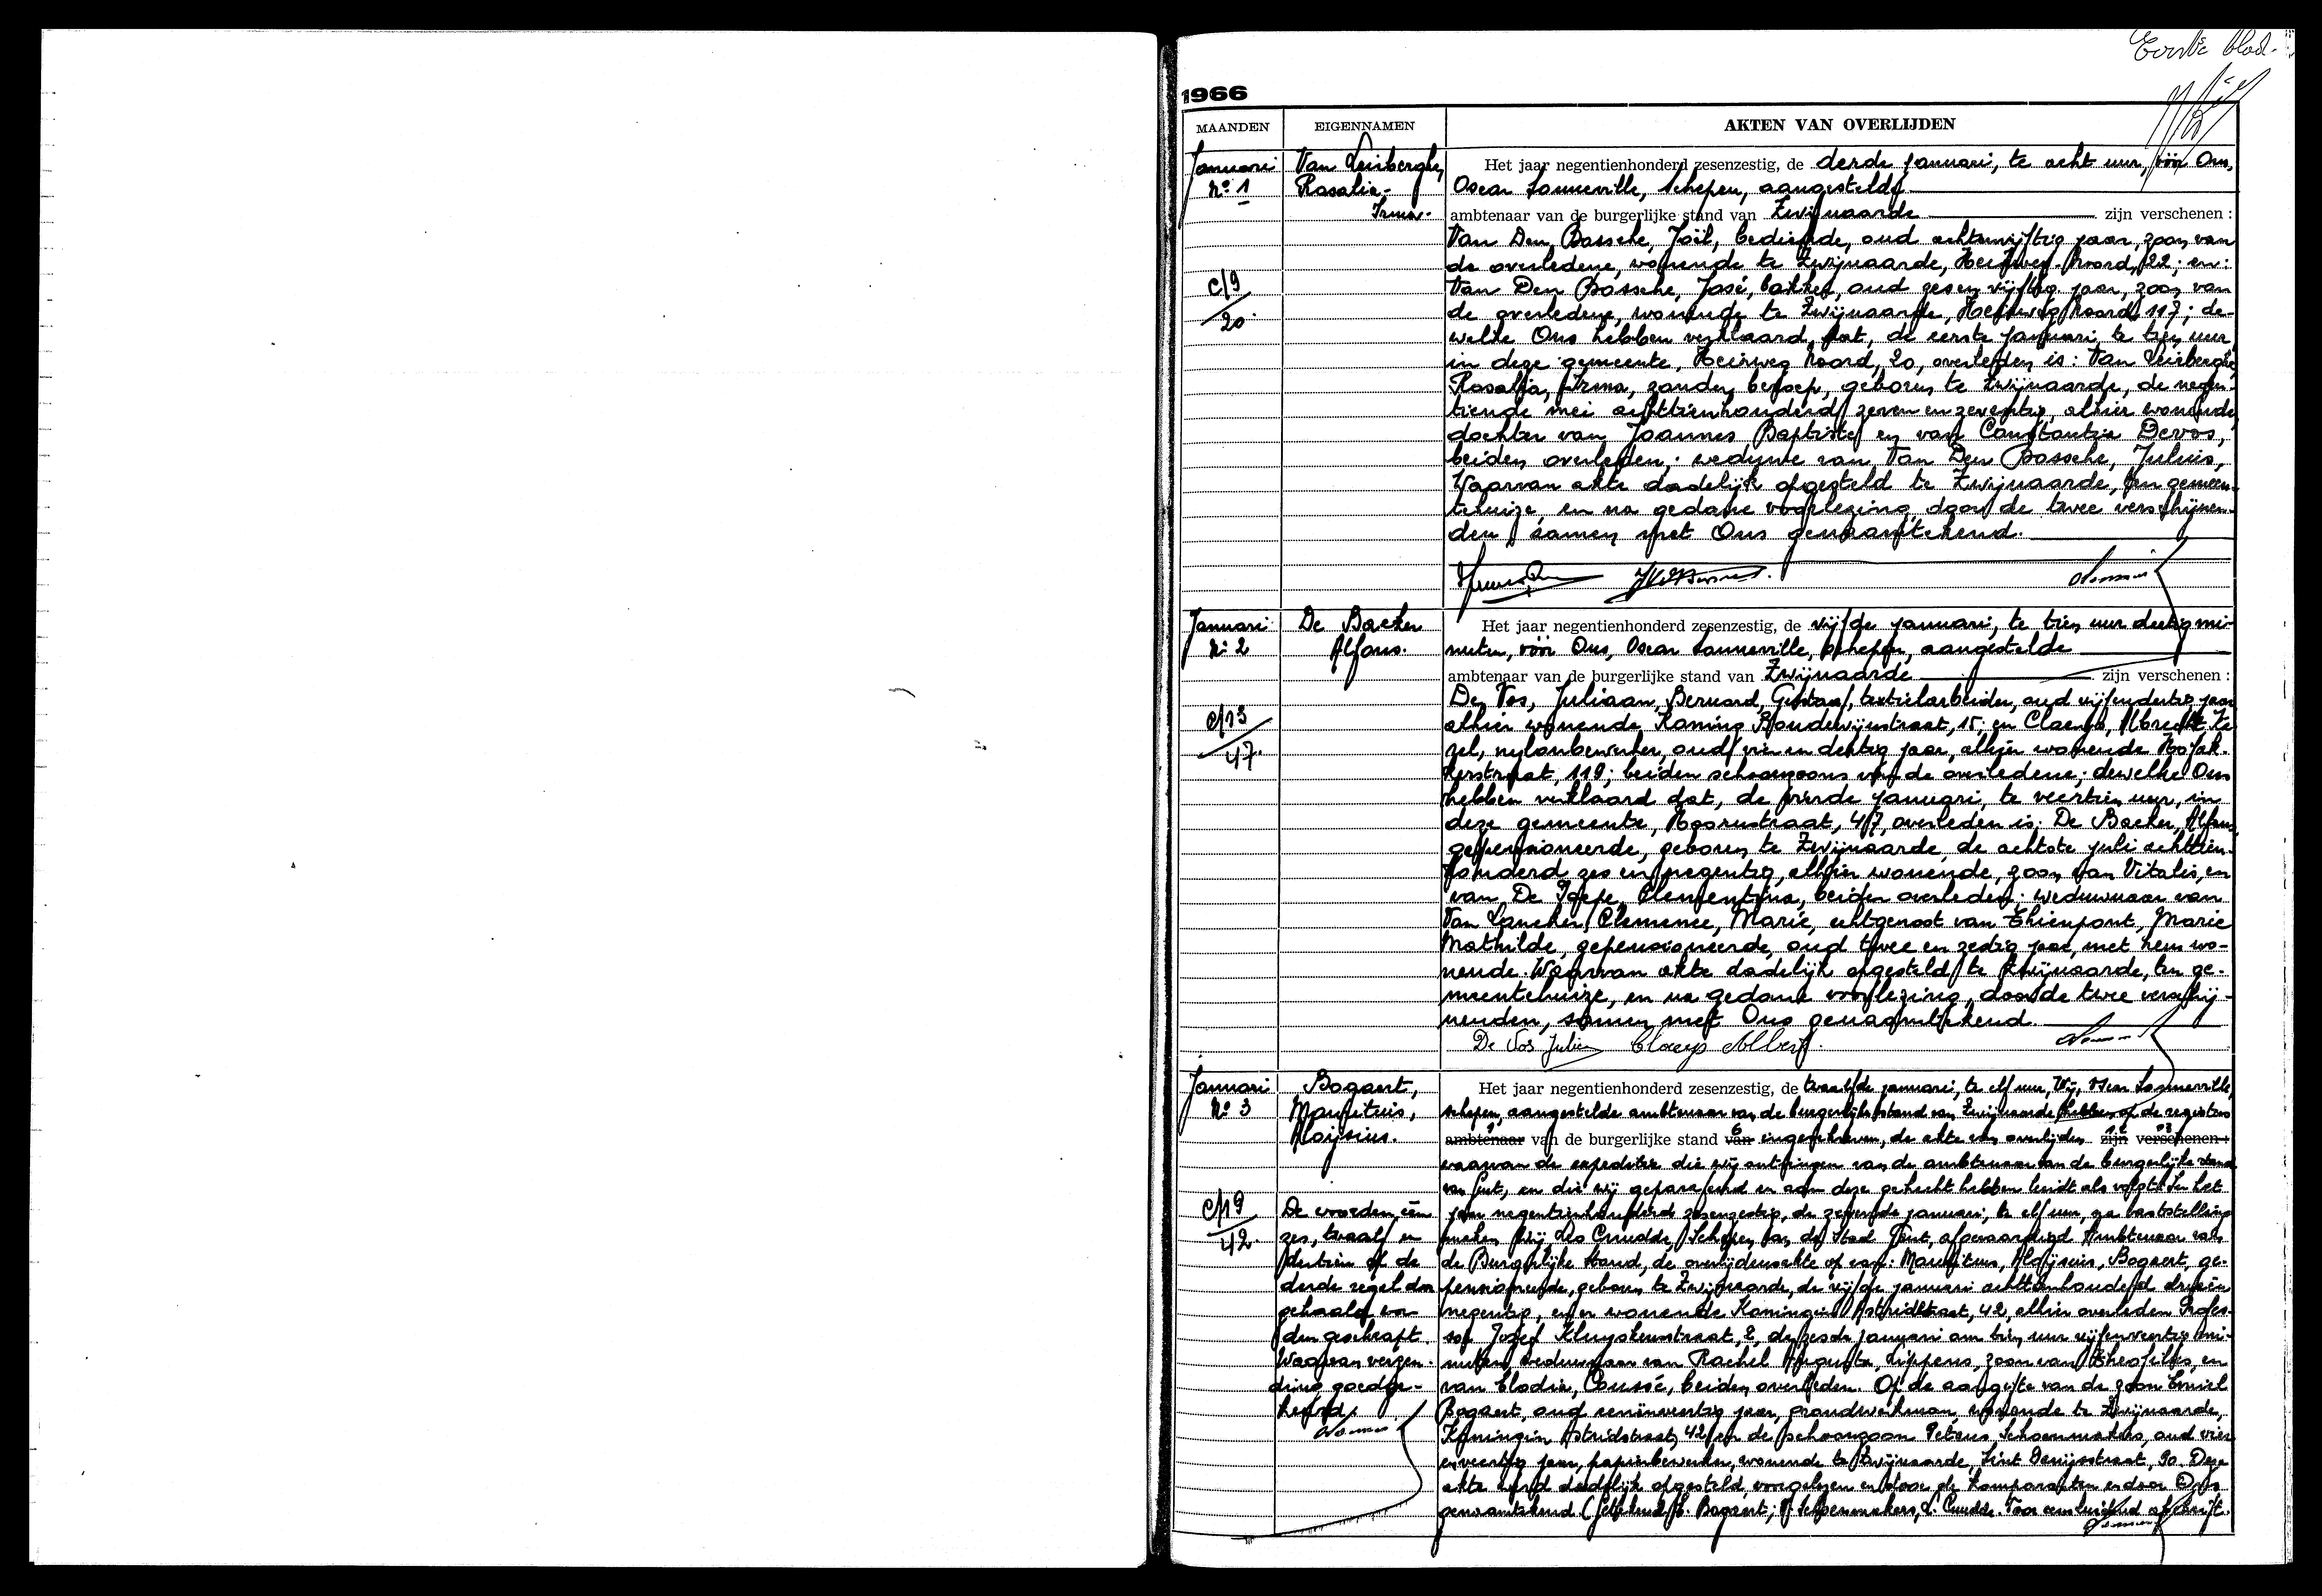 Eerste blad.
1966
MAANDEN EIGENNAMEN AKTEN VAN OVERLIJDEN
Januari
No 1
Van Leirberghe,
Rosalia-
Irma.
C/9
20.
Het jaar negentienhonderd zesenzestig, de derde januari, te acht uur, vóór Ons,
Oscar Lanneville, schepen, aangestelde
ambtenaar van de burgerlijke stand van Zwijnaarde zijn verschenen :
Van Den Bossche, Joël, bediende, oud achtenvijftig jaar, zoon van
de overledene, wonende te Zwijnaarde, Heirweg-Noord, 22; en:
Van Den Bossche, José, bakker, oud zesenvijftig jaar, zoon van
de overledene, wonende te Zwijnaarde, Heirweg Noord, 117; de-
welke Ons hebben verklaard, dat, de eerste januari, te tien uur,
in deze gemeente, Heirweg Noord, 20, overleden is: Van Leirberghe,
Rosalia, Irma, zonder beroep, geboren te Zwijnaarde, de negen-
tiende mei achttienhonderd zeven en zeventig, alhier wonende,
dochter van Joannes Baptiste en van Constantia Devos,
beiden overleden; weduwe van Van Den Bossche, Julius,
Waarvan akte dadelijk opgesteld te Zwijnaarde, ten gemeen-
tehuize, en na gedane voorlezing, door de twee verschijnen-
den, samen met Ons genaamtekend.
Januari
No 2
De Baeker
Alfons.
C/13
47.
Het jaar negentienhonderd zesenzestig, de vijfde januari, te tien uur dertig mi-
nuten, vóór Ons, Oscar Lanneville, schepen, aangestelde
ambtenaar van de burgerlijke stand van Zwijnaarde zijn verschenen :
De Vos, Juliaan, Bernard, Gustaaf, textielarbeider, oud vijfendertig jaar
alhier wonende, Koning Boudewijnstraat, 15; en Claeys, Albrecht,
nylonbewerker, oud vier en dertig jaar, alhier wonende
118; beiden schoonzoons van de overledene; dewelke Ons
hebben verklaard dat, de vierde januari, te veertien uur, in
deze gemeente, Hoornstraat, 47, overleden is: De Baeker, Alfons,
gepensioneerde, geboren te Zwijnaarde, de achtste juli achttien-
honderd zes en negentig, alhier wonende, zoon van Vitalis, en
van De Paepe, Clementina, beiden overleden; weduwnaar van
Van Lancker, Clemence, Marie, echtgenoot van Thienpont, Marie
Mathilde, gepensioneerde, oud twee en zestig jaar, met hem wo-
nende. Waarvan akte dadelijk opgesteld te Zwijnaarde, ten ge-
meentehuize, en na gedane voorlezing, door de twee verschij-
nenden, samen met Ons genaamtekend.
De Vos Julien Claeys Albert
Januari
No 3
Bogaert,
Mauritius,
Aloijsius.
C/19
42.
De woorden één
zes, twaalf en
dertien op de
derde regel door
gehaald wor-
den geschrapt.
Waarvan verzen-
ding goedge-
keurd.
Het jaar negentienhonderd zesenzestig, de twaalfde januari, te elf uur, Wij, Oscar Lanneville,
schepen, aangestelde ambtenaar van de burgerlijke stand van Zwijnaarde hebben op de registers
ambtenaar van de burgerlijke stand van ingeschreven, de akte van overlijden zijn verschenen :
waarvan de expeditie die wij ontvingen van de ambtenaar van de burgerlijke stand
van Gent, en die wij geparafeerd en aan deze gehecht hebben luidt als volgt: In het
jaar negentienhonderd zesenzestig, de zevende januari, te elf uur, na vaststelling
maken Wij, Leo Cnudde, Schepen van de Stad Gent, afgevaardigd Ambtenaar van
de Burgerlijke Stand, de overlijdensakte op van: Mauritius, Aloijsius, Bogaert, ge-
pensioneerde, geboren te Zwijnaarde, de vijfde januari achttienhonderd drieën
negentig, en er wonende Koningin Astridstraat, 42, alhier overleden Profes-
sor Jozef Kluyskensstraat, 2, de zesde januari om tien uur vijfenveertig mi-
nuten, weduwnaar van Rachel Augusta, Lippens, zoon van Theofilus, en
van Elodie, Coussé, beiden overleden. Op de aangifte van de zoon Emiel
Bogaert, oud jaar, grondwerkman, wonende te Zwijnaarde,
Koningin Astridstraat, 42, en de schoonzoon Petrus Schoenmakers, oud vier
enveertig jaar, papierbewerker, wonende te Zwijnaarde, Sint Denijsstraat, 90. Deze
akte werd dadelijk opgesteld, voorgelezen en door de komparanten en door Ons
genaamtekend (Getekend) E. Bogaert; P. Schoenmakers, L. Cnudde. Voor eensluidend afschrift.